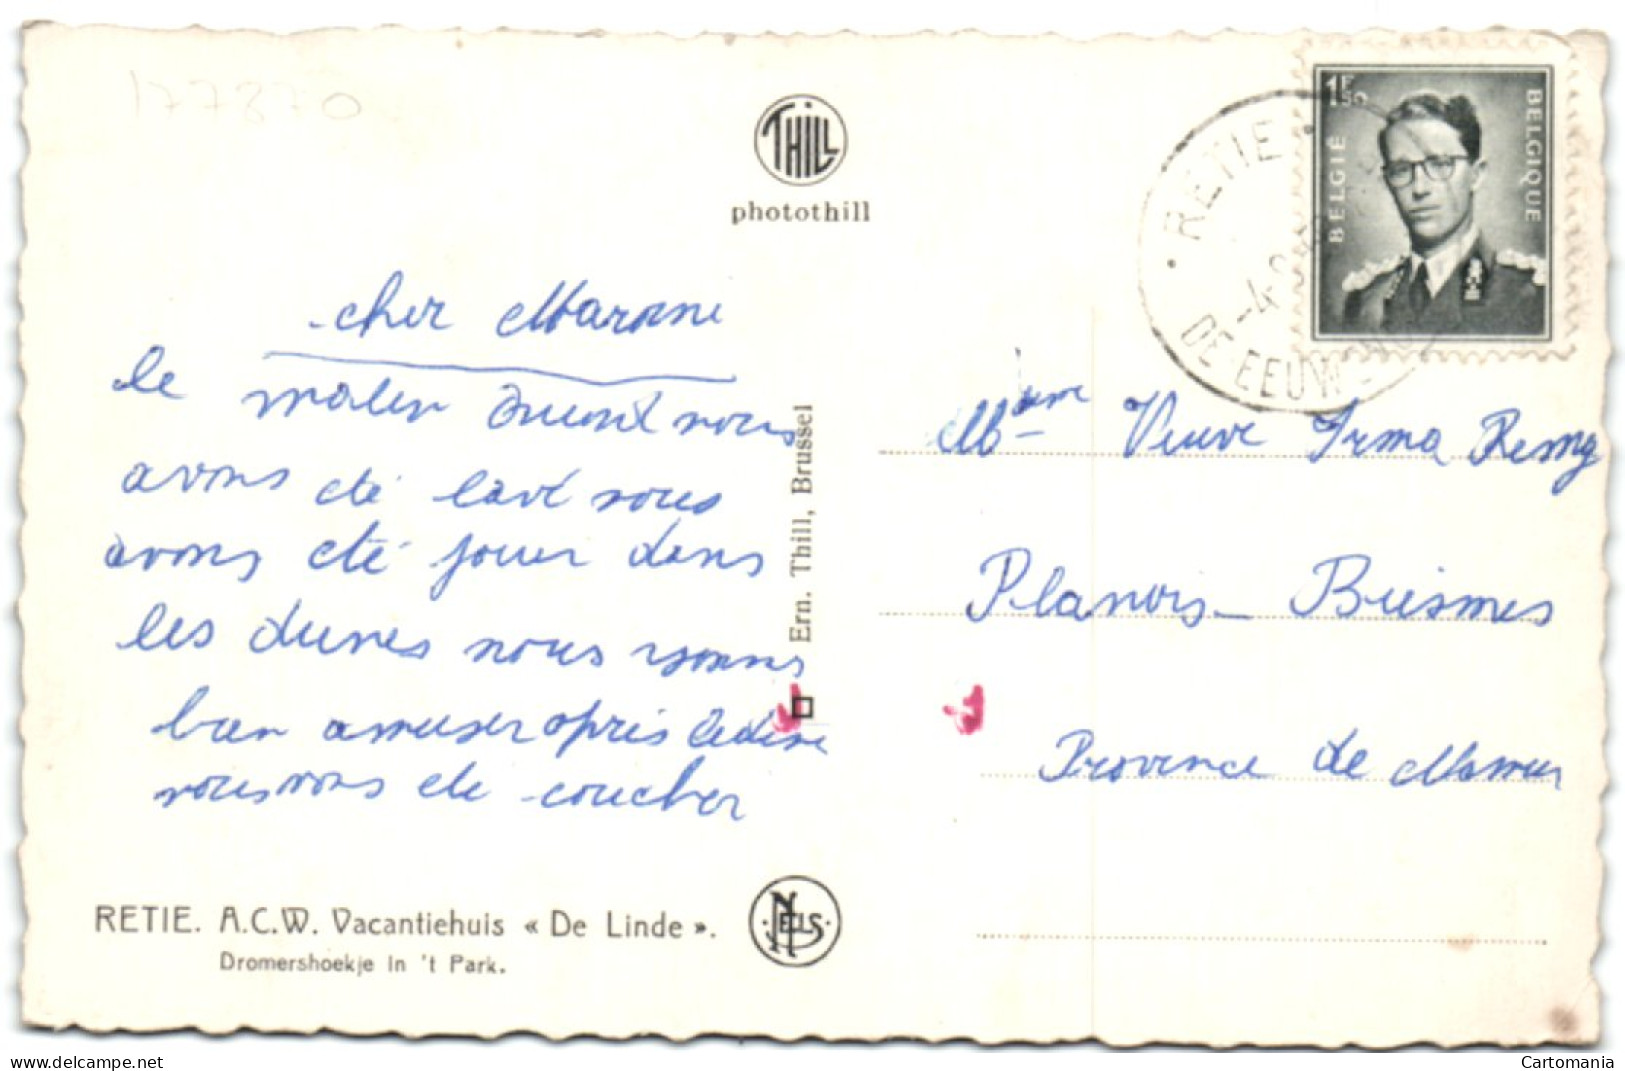 177870
THILL
photothill
1F50
BELGIË
BELGIQUE
RETIE
-4-
DE EEUW
cher Marraine
le maten avent nous
avons été lavé nous
avons été jouer dans
les dunes nous
bien amuser après
nous été coucher
Ern. Thill, Brussel
Mame Veuve Irma Remy
Planois - Biesmes
Province de Namur
RETIE. A.C.W. Vacantiehuis « De Linde ».
Dromershoekje in 't Park.
NELS
delcampe.net
Cartomania